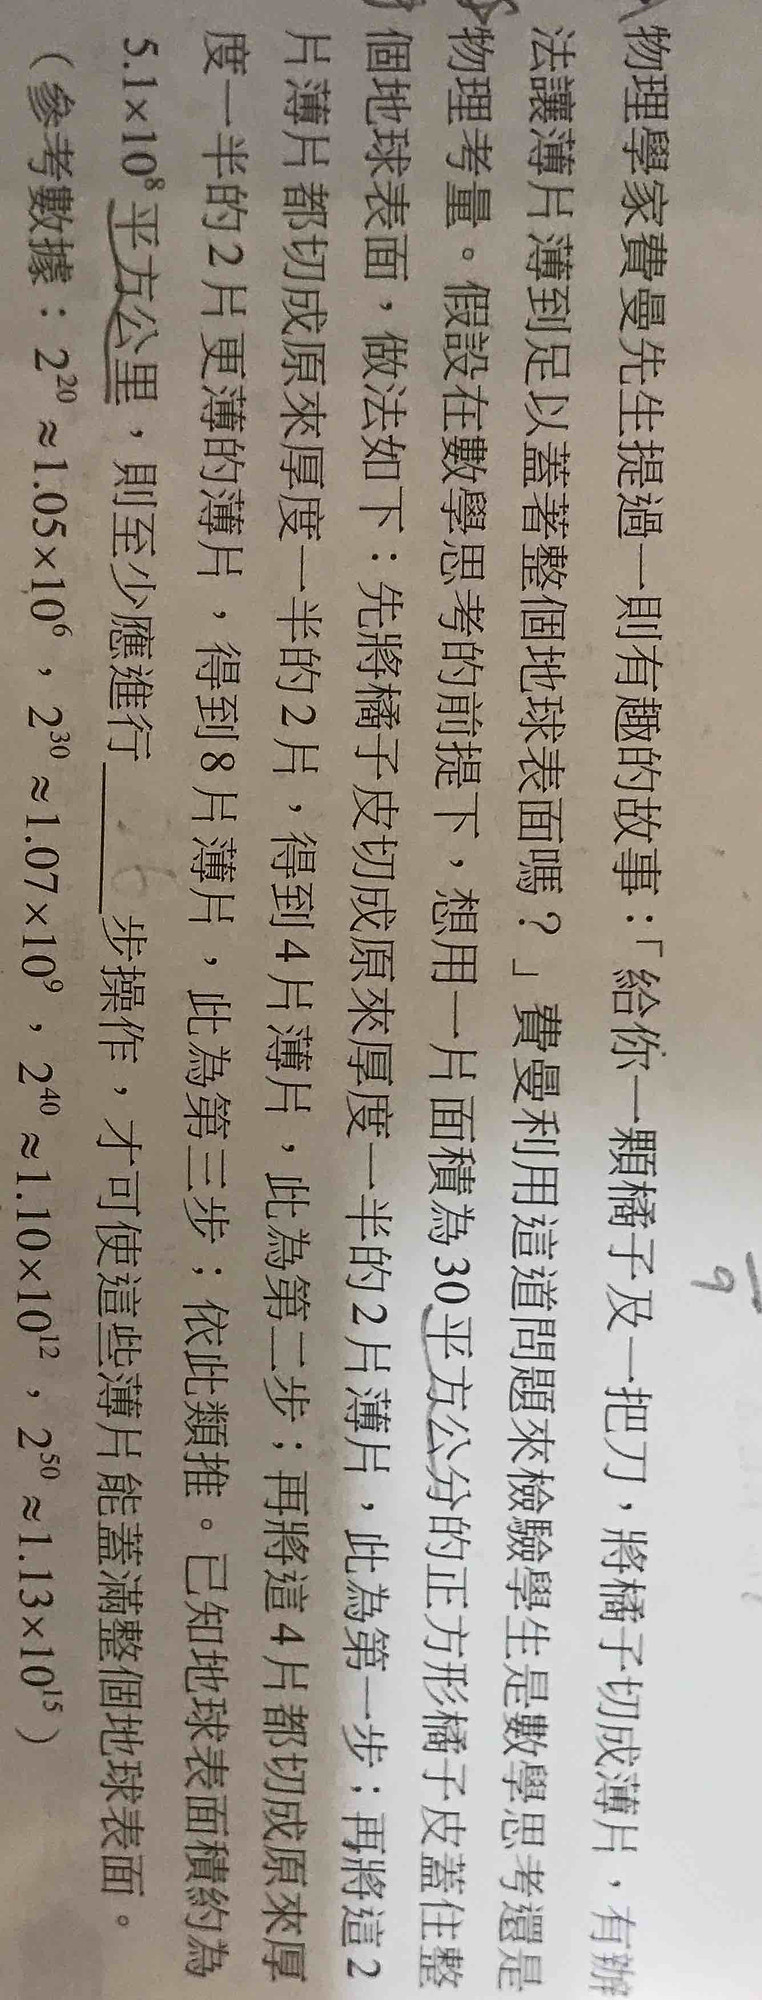 物理學家費曼先生提過一則有趣的故事:「給你一顆橘子及一把刀,將橘子切成薄片,有辦
法讓薄片薄到足以蓋著整個地球表面嗎?」費曼利用這道問題來檢驗學生是數學思考還是
物理考量。假設在數學思考的前提下,想用一片面積為30平方公分的正方形橘子皮蓋住整
個地球表面,做法如下:先將橘子皮切成原來厚度一半的2片薄片,此為第一步;再將這2
片薄片都切成原來厚度一半的2片,得到4片薄片,此為第二步;再將這4片都切成原來厚
度一半的2片更薄的薄片,得到8片薄片,此為第三步;依此類推。已知地球表面積約為
5.1×10⁸平方公里,則至少應進行______步操作,才可使這些薄片能蓋滿整個地球表面。
(參考數據:2²⁰≈1.05×10⁶,2³⁰≈1.07×10⁹,2⁴⁰≈1.10×10¹²,2⁵⁰≈1.13×10¹⁵)